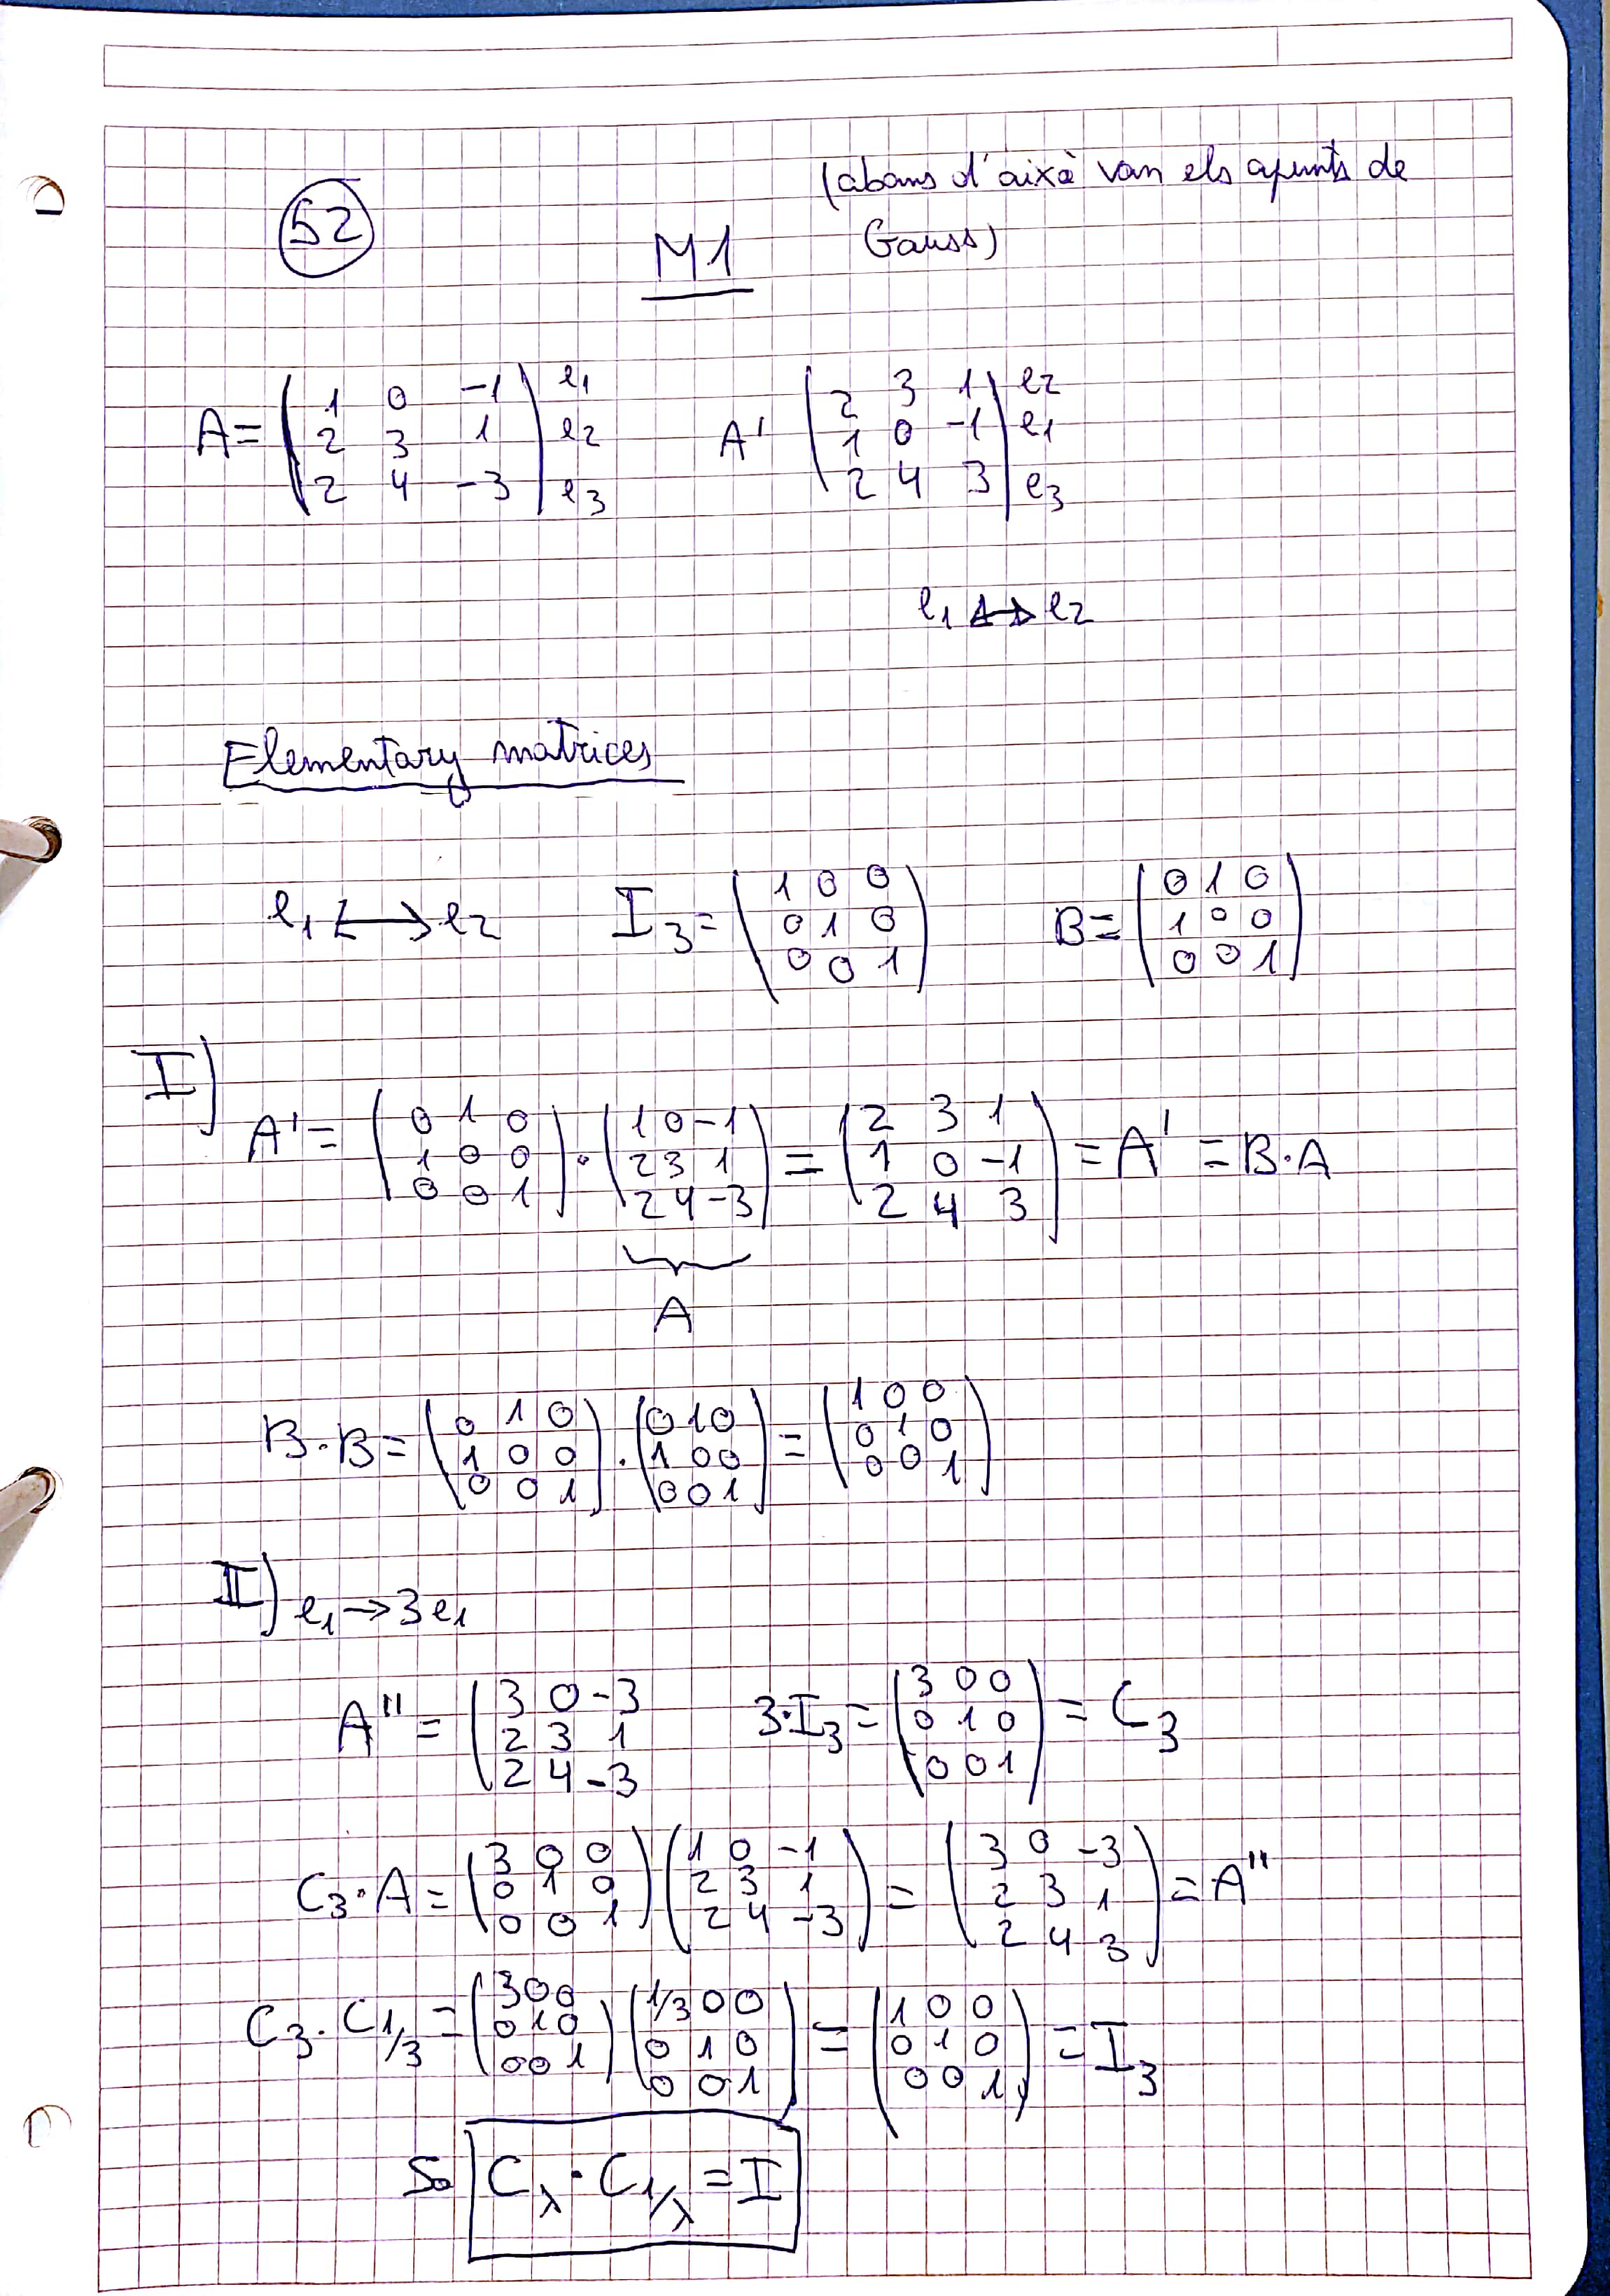 (abans d'això van els apunts de
52
M1
Gauss)
A= ( 1 0 -1 | e1
2 3 1 | e2
2 4 -3 ) | e3
A' ( 2 3 1 | e2
1 0 -1 | e1
2 4 3 ) | e3
e1 ↔ e2
Elementary matrices
e1 ↔ e2 I3= ( 1 0 0
0 1 0
0 0 1 )
B= ( 0 1 0
1 0 0
0 0 1 )
I)
A' = ( 0 1 0
1 0 0
0 0 1 ) · ( 1 0 -1
2 3 1
2 4 -3 ) = ( 2 3 1
1 0 -1
2 4 3 ) = A' = B·A
A
B·B = ( 0 1 0
1 0 0
0 0 1 ) · ( 0 1 0
1 0 0
0 0 1 ) = ( 1 0 0
0 1 0
0 0 1 )
II) e1 → 3e1
A'' = ( 3 0 -3
2 3 1
2 4 -3
3·I3 = ( 3 0 0
0 1 0
0 0 1 ) = C3
C3·A = ( 3 0 0
0 1 0
0 0 1 ) ( 1 0 -1
2 3 1
2 4 -3 ) = ( 3 0 -3
2 3 1
2 4 3 ) = A''
C3·C1/3 = ( 3 0 0
0 1 0
0 0 1 ) ( 1/3 0 0
0 1 0
0 0 1 ) = ( 1 0 0
0 1 0
0 0 1 ) = I3
So Cλ · C1/λ = I